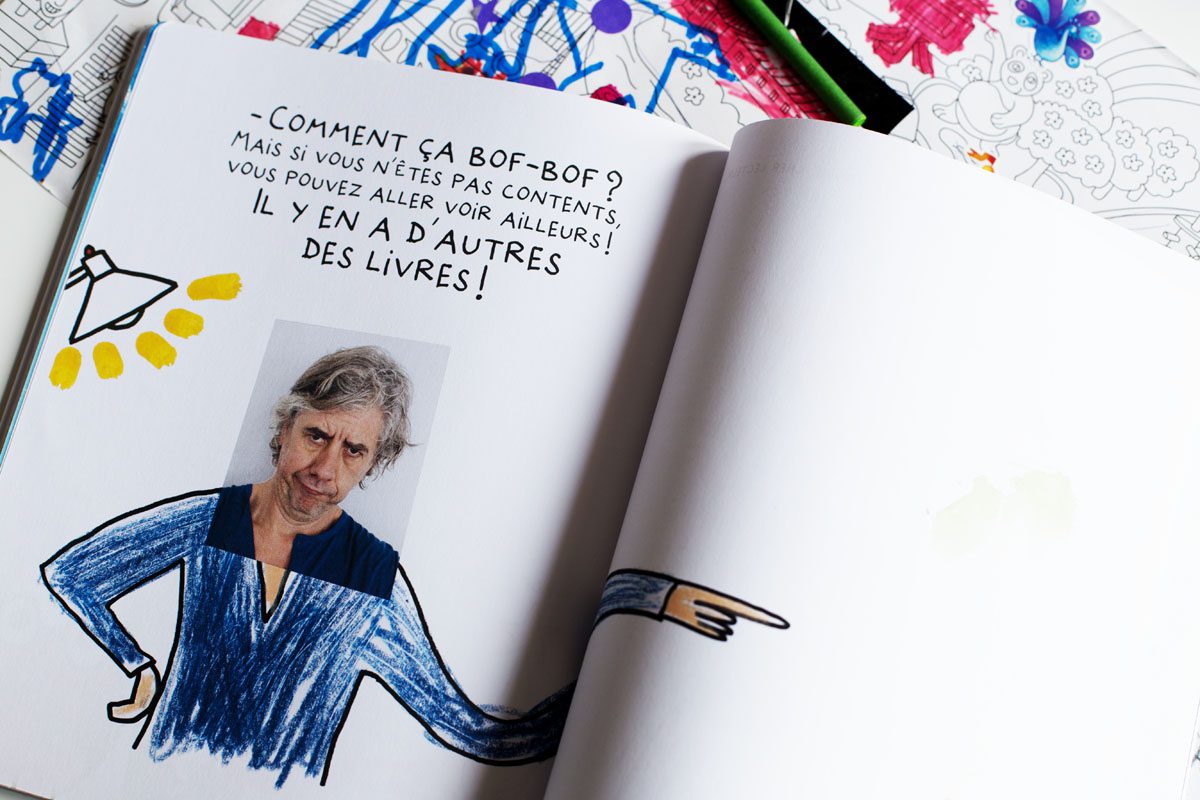 -COMMENT ÇA BOF-BOF ?
MAIS SI VOUS N'ÊTES PAS CONTENTS,
VOUS POUVEZ ALLER VOIR AILLEURS !
IL Y EN A D'AUTRES
DES LIVRES !